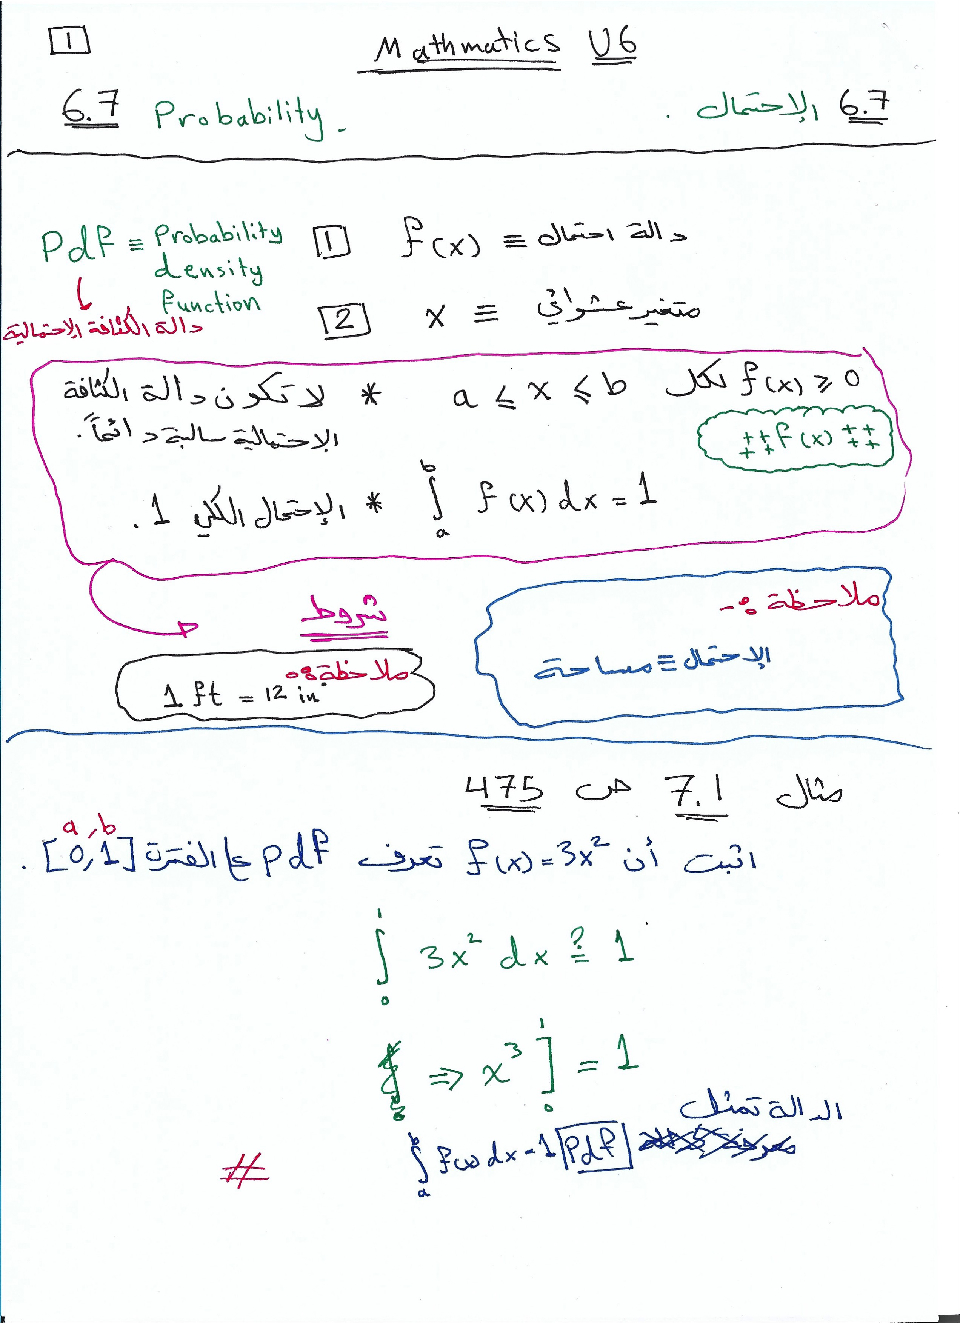 1
Mathmatics U6
6.7 Probability.
6.7 الإحتمال .
Pdf ≡ Probability density function
دالة الكثافة الإحتمالية
1 f(x) ≡ دالة احتمال
2 x ≡ متغير عشوائي
f(x) ⩾ 0 لكل a ⩽ x ⩽ b * لا تكون دالة الكثافة
الإحتمالية سالبة دائماً.
++ f(x) ++
++ ++
∫ₐᵇ f(x) dx = 1 * الإحتمال الكلي 1 .
شروط
ملاحظة :-
الإحتمال ≡ مساحة
ملاحظة :
1 ft = 12 in
مثال 7.1 ص 475
a, b
اثبت أن f(x) = 3x² تعرف pdf على الفترة [0,1] .
∫₀¹ 3x² dx ≟ 1
⇒ x³ ]₀¹ = 1
الدالة تمثل
∫ₐᵇ f(x) dx = 1 Pdf
#